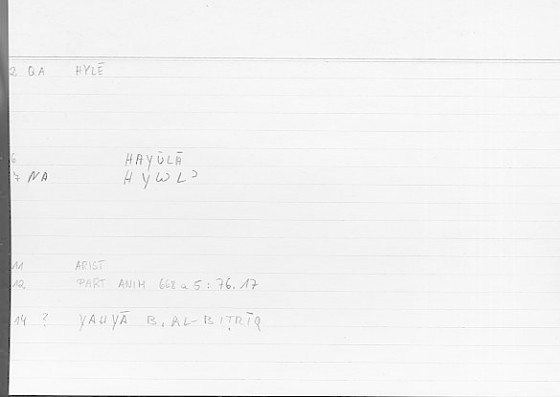 2 QA HYLĒ
6 HAYŪLĀ
7 NA HYWLʾ
11 ARIST
12 PART ANIM 668 a 5 : 76.17
14 ? YAḤYĀ B. AL-BIṬRĪQ